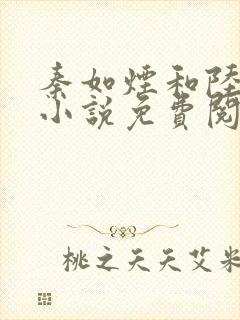 秦如煙和陸
小說免費閱
桃之天天艾米